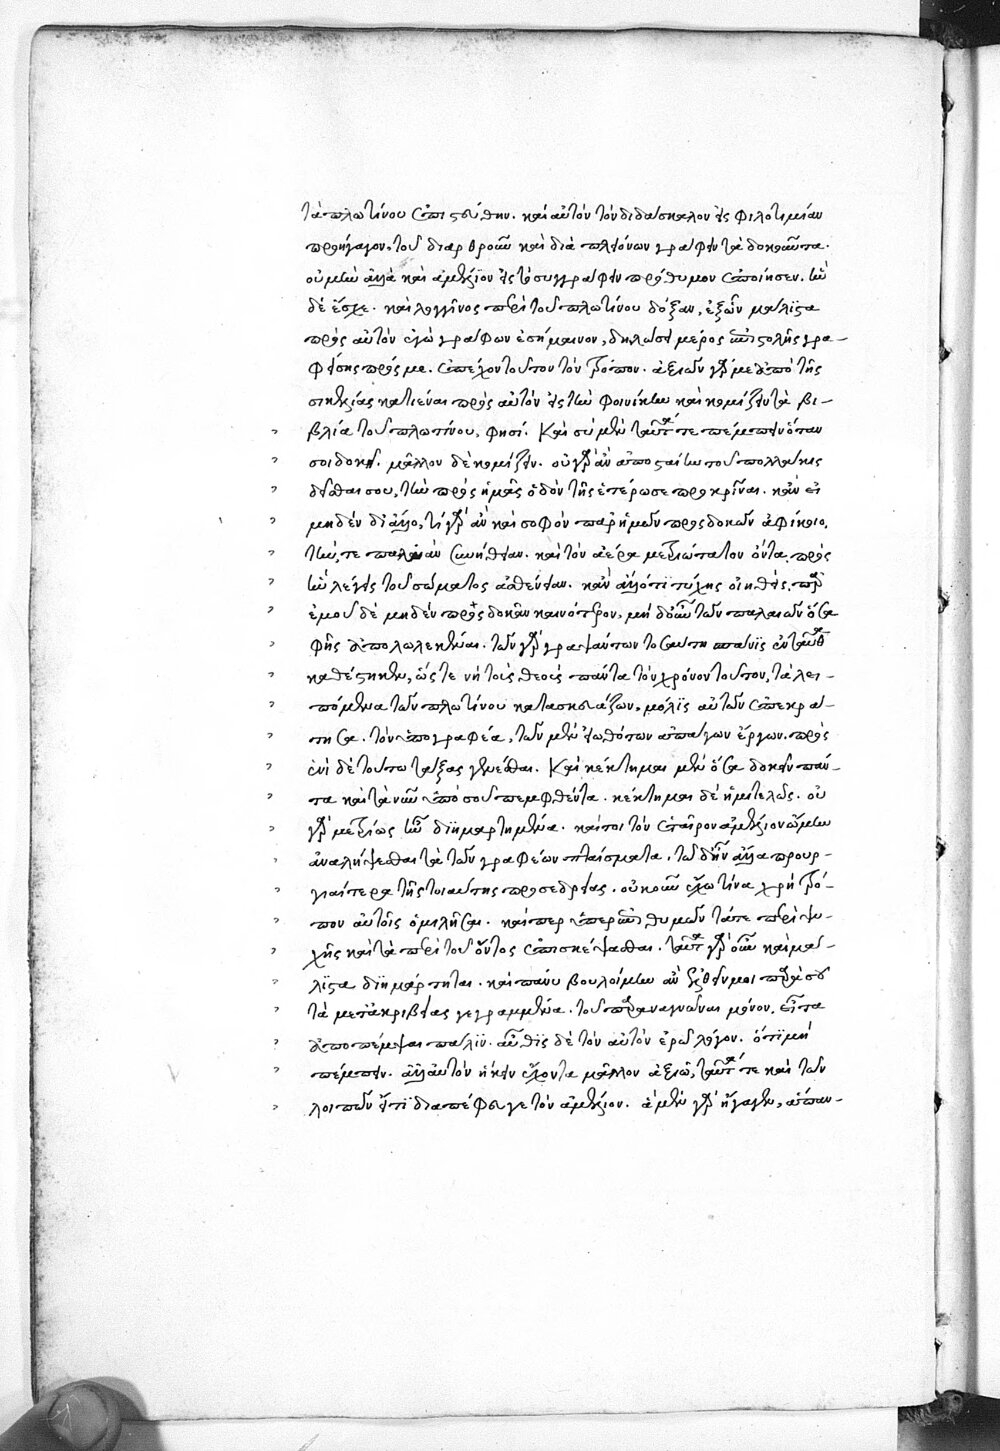 τὰ πλωτίνου ἐπιστεύθην. καὶ αὐτὸν τὸν διδάσκαλον εἰς φιλοτιμίαν
προήγαγον, τοῦ διαρθροῦν καὶ διὰ πλειόνων γράφειν τὰ δοκοῦντα.
οὐ μὴν ἀλλὰ καὶ ἀμέλιον εἰς τὸ συγγράφειν πρόθυμον ἐποίησεν. ἣν
δὲ ἔσχε. καὶ λογγῖνος περὶ τοῦ πλωτίνου δόξαν, ἐξ ὧν μάλιστα
πρὸς αὐτὸν ἐγὼ γράφων ἐσήμαινον, δηλώσει μέρος ἐπιστολῆς γρα-
φείσης πρός με. ἐπέχον τοῦτον τὸν τρόπον. ἀξιῶν γάρ με ἀπὸ τῆς
σικελίας κατιέναι πρὸς αὐτὸν εἰς τὴν φοινίκην καὶ κομίζειν τὰ βι-
βλία τοῦ πλωτίνου, φησί. Καὶ σὺ μὲν ταῦτά τε πέμπειν ὅταν
σοι δοκῇ. μᾶλλον δὲ κομίζειν. οὐ γὰρ ἂν ἀποσταίην τοῦ πολλάκις
δεῖσθαί σου, τὴν πρὸς ἡμᾶς ὁδὸν τῆς ἑτέρωσε προκρῖναι. κἂν εἰ
μηδὲν δι' ἄλλο, τί γὰρ ἂν καὶ σοφὸν παρ' ἡμῶν προσδοκῶν ἀφίκοιο.
τήν τε παλαιὰν συνήθειαν. καὶ τὸν ἀέρα μετριώτατον ὄντα πρὸς
ἣν λέγεις τοῦ σώματος ἀσθένειαν. κἂν ἄλλό τι τύχης οἰηθείς. παρ'
ἐμοῦ δὲ μηδὲν προσδοκᾶν καινότερον, μὴ δ' οὖν τῶν παλαιῶν ὅσα
φῂς ἀπολωλεκέναι. τῶν γὰρ γραψάντων τοσαύτη σπάνις ἐνταῦθα
καθέστηκεν, ὥστε νὴ τοὺς θεοὺς πάντα τὸν χρόνον τοῦτον, τὰ λει-
πόμενα τῶν πλωτίνου κατασκευάζων, μόλις αὐτῶν ἐπεκρά-
τησα. τὸν ὑπογραφέα, τῶν μὲν εἰωθότων ἀπάγων ἔργων. πρὸς
ἑνὶ δὲ τούτῳ τάξας γενέσθαι. Καὶ κέκτημαι μὲν ὅσα δοκεῖν πάν-
τα καὶ τὰ νῦν ὑπὸ σοῦ πεμφθέντα. κέκτημαι δὲ ἡμιτελῶς. οὐ
γὰρ μετρίως ἦν διημαρτημένα. καίτοι τὸν ἑταῖρον ἀμέλιον ᾤμην
ἀναλήψεσθαι τὰ τῶν γραφέων πταίσματα. τῷ δ' ἦν ἄλλα προυρ-
γιαίτερα τῆς τοιαύτης προσεδρείας. οὐκοῦν ἔχω τίνα χρὴ τρό-
πον αὐτοῖς ὁμιλῆσαι. καίπερ ὑπερεπιθυμῶν τά τε περὶ ψυ-
χῆς καὶ τὰ περὶ τοῦ ὄντος ἐπισκέψασθαι. ταῦτα γὰρ οὖν καὶ μά-
λιστα διημάρτηται. καὶ πάνυ βουλοίμην ἂν ἐλθεῖν μοι παρὰ σοῦ
τὰ μετ' ἀκριβείας γεγραμμένα. τοῦ παραναγνῶναι μόνον. εἶτα
ἀποπέμψαι πάλιν. αὖθις δὲ τὸν αὐτὸν ἐρῶ λόγον. ὅτι μὴ
πέμπειν. ἀλλ' αὐτὸν ἥκειν ἔχοντα μᾶλλον ἀξιῶ, ταῦτά τε καὶ τῶν
λοιπῶν εἴ τι διαπέφευγε τὸν ἀμέλιον. ἃ μὲν γὰρ ἤγαγεν, ἅπαν-